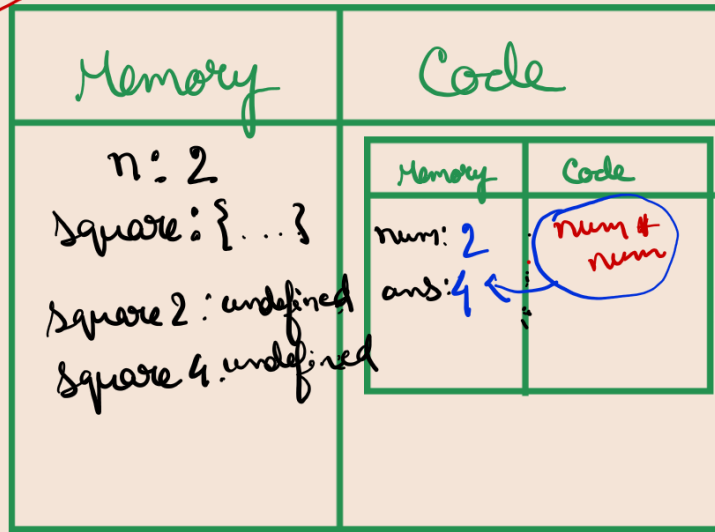 Memory
Code
n: 2
square: {...}
square 2: undefined
square 4: undefined
Memory
Code
num: 2
ans: 4
num *
num